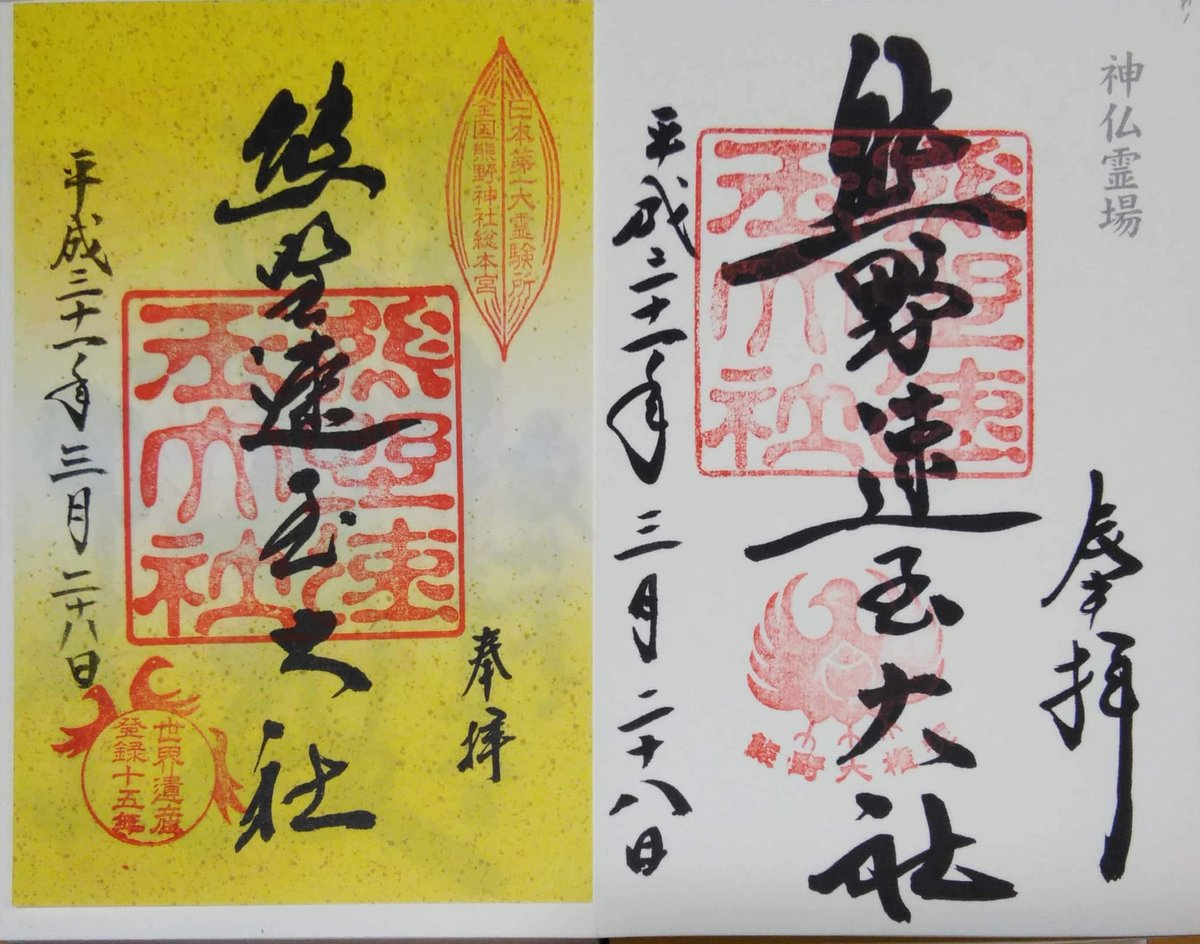 神仏霊場
奉拝
熊野速玉大社
熊野速玉大社
熊野大権現
平成三十一年三月二十八日
日本第一大霊験所
全国熊野神社総本宮
奉拝
熊野速玉大社
熊野速玉大社
平成三十一年三月二十八日
世界遺産
登録十五年